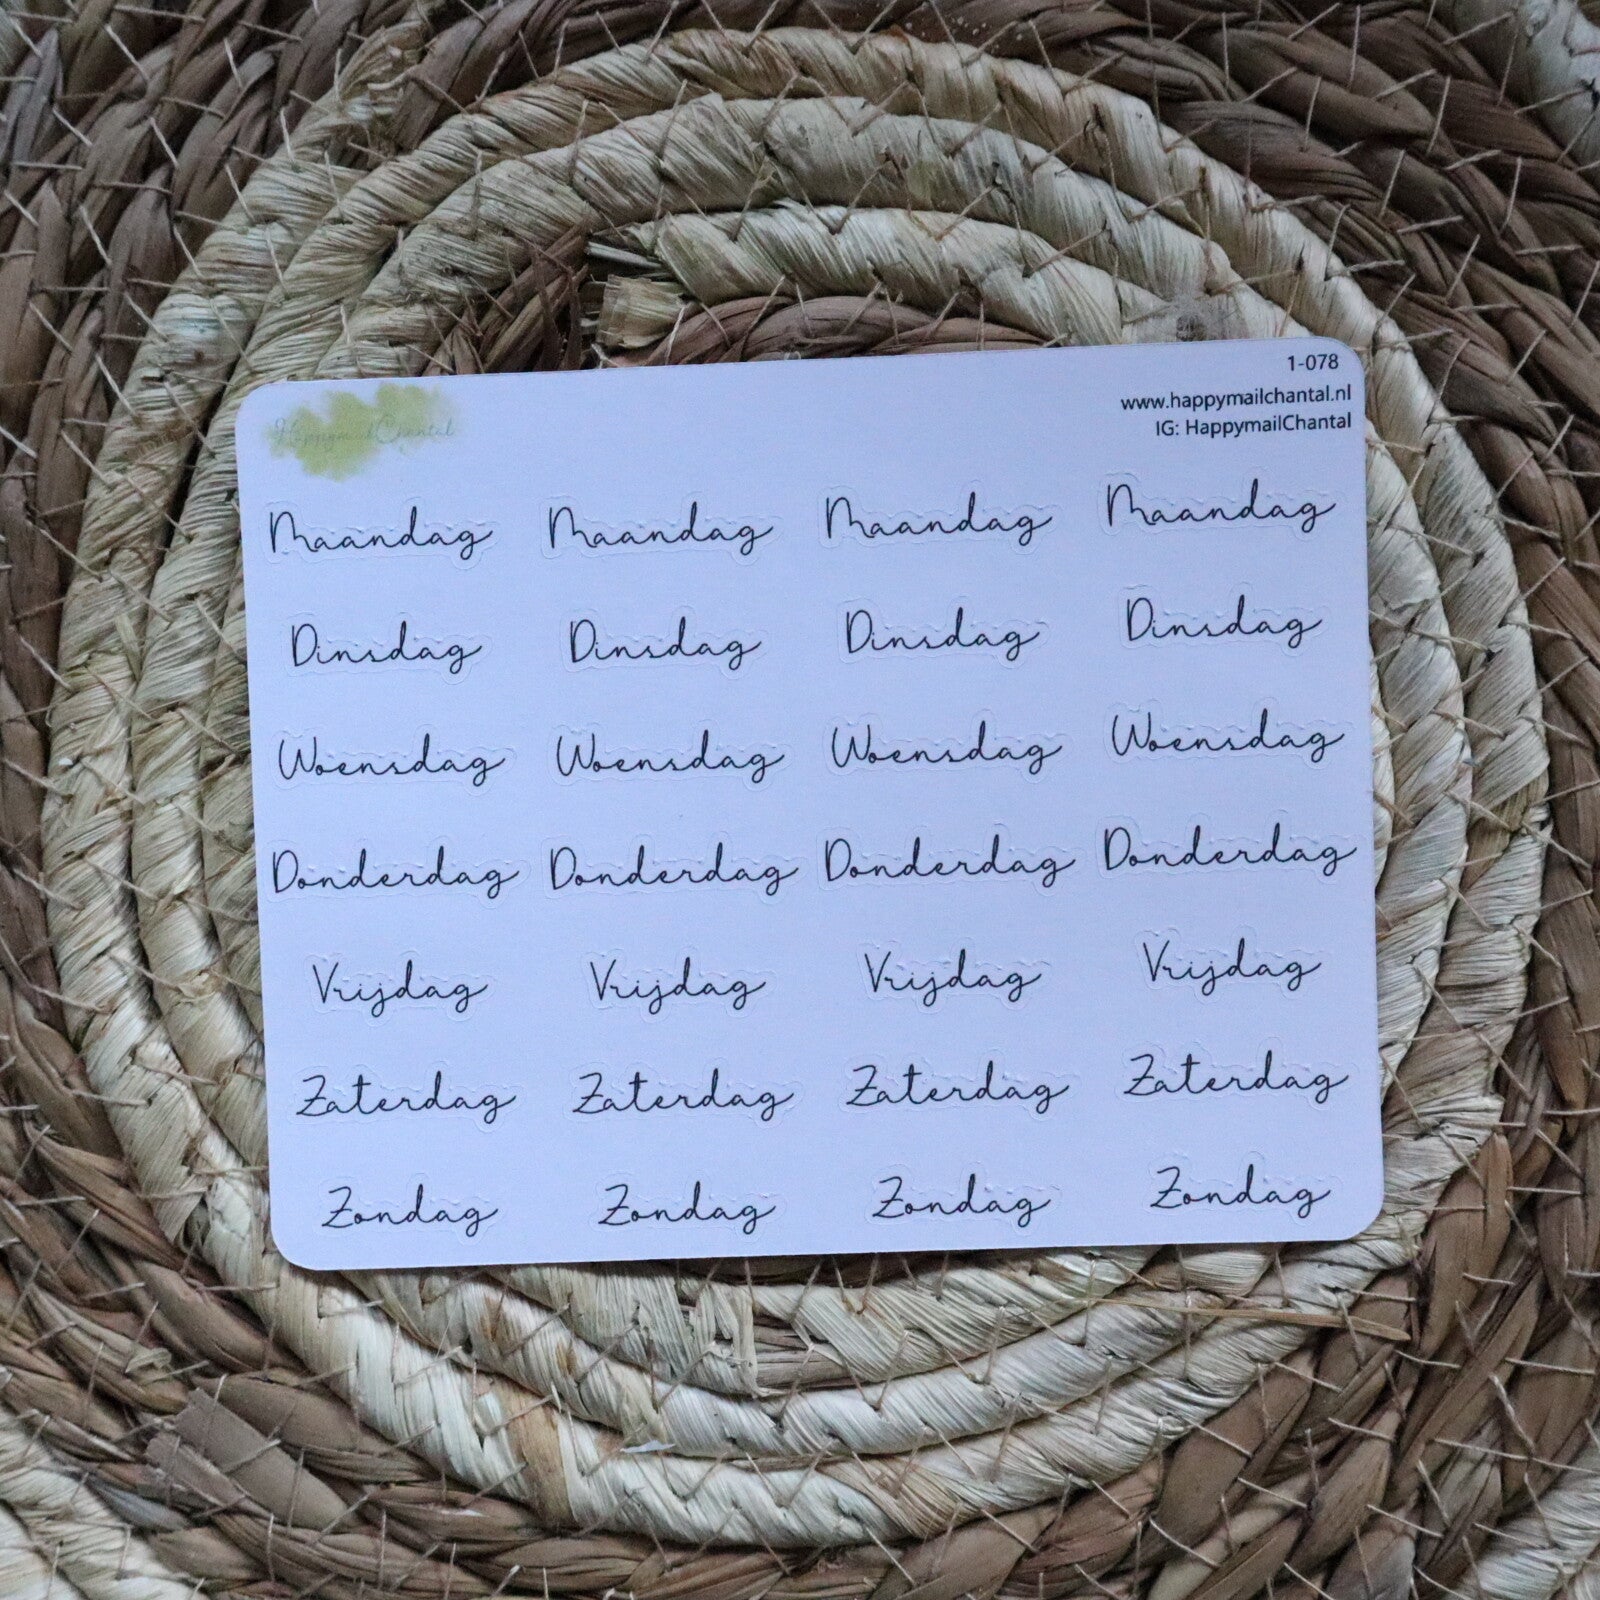 1-078
www.happymailchantal.nl
IG: HappymailChantal
HappymailChantal
Maandag Maandag Maandag Maandag
Dinsdag Dinsdag Dinsdag Dinsdag
Woensdag Woensdag Woensdag Woensdag
Donderdag Donderdag Donderdag Donderdag
Vrijdag Vrijdag Vrijdag Vrijdag
Zaterdag Zaterdag Zaterdag Zaterdag
Zondag Zondag Zondag Zondag